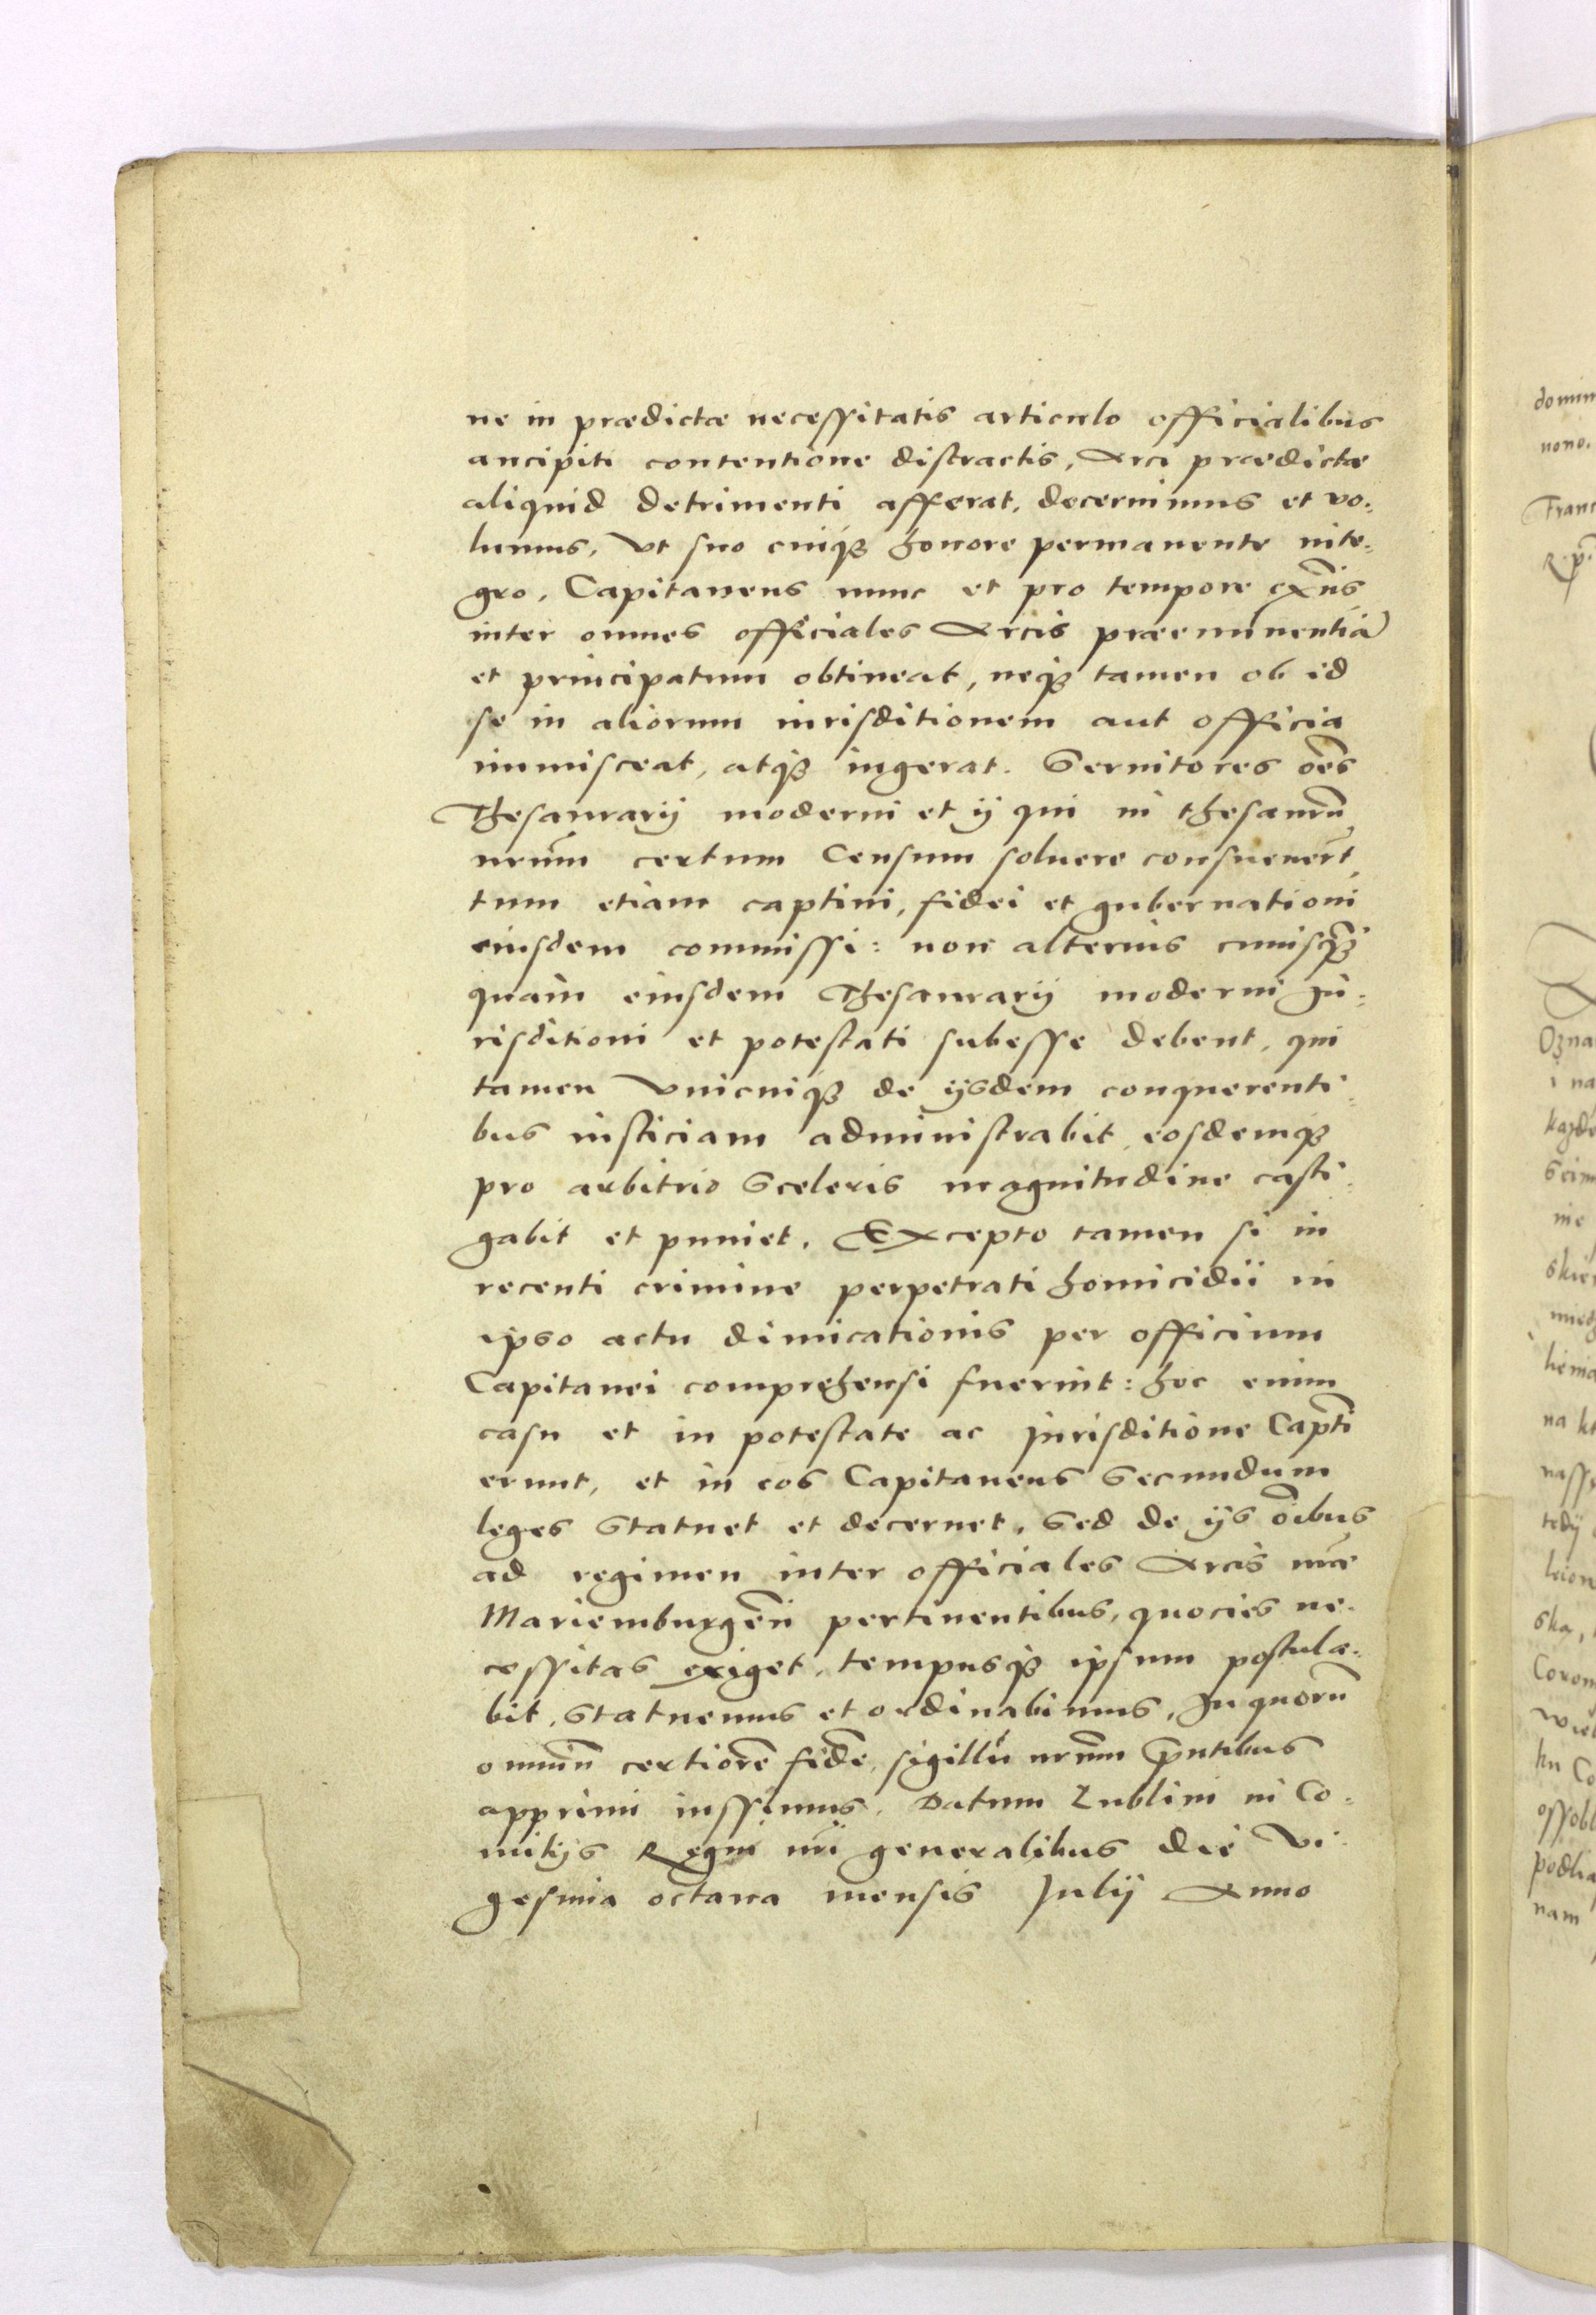 ne in prædictæ necessitatis articulo officialibus
ancipiti contentione distractis, Arci prædictæ
aliquid detrimenti afferat, decernimus et vo:
lumus, vt suo cuiqꝫ honore permanente inte:
gro, Capitaneus nunc et pro tempore exñs
inter omnes officiales Arcis præeminentiã
et principatum obtineat, neqꝫ tamen ob id
se in aliorum iurisditionem aut officia
immisceat, atqꝫ ingerat. Seruitores oẽs
Thesaurarij moderni et ij qui in thesaurũ
nrũm certum Censum soluere consueuerũt,
tum etiam captiui, fidei et gubernationi
eiusdem commissi: non alterius cuiusqꝫ
quam eiusdem Thesaurarij moderni Ju:
risditioni et potestati subesse debent, qui
tamen vnicuiqꝫ de ijsdem conquerenti:
bus iusticiam administrabit, eosdemqꝫ
pro arbitrio sceleris magnitudine casti:
gabit et puniet. Excepto tamen si in
recenti crimine perpetrati homicidii in
ipso actu dimicationis per officium
Capitanei comprehensi fuerint: hoc enim
casu et in potestate ac jurisditione Capti
erunt, et in eos Capitaneus secundum
leges statuet et decernet. Sed de ijs oĩbus
ad regimen inter officiales Arcis nr̃æ
Mariemburgeñ pertinentibus, quocies ne:
cessitas exiget, tempusqꝫ ipsum postula:
bit, statuemus et ordinabimus. In quorũ
omniũ certiorẽ fidẽ, sigillũ nrũm p̃ntibus
apprimi iussimus. Datum Lublini in Co:
mitijs Regni nr̃i generalibus die vi:
gesima octaua mensis Julij Anno
domin
nono.
Franc